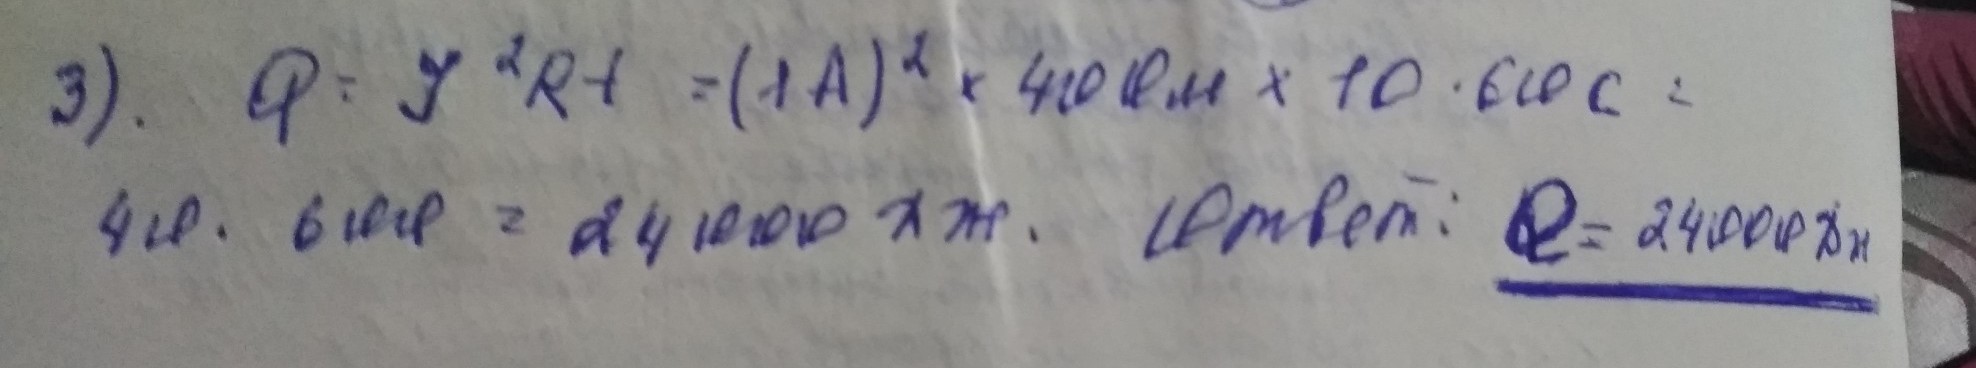 3). Q = I²Rt = (1A)² × 40 Ом × 10 · 60 с =
40 · 600 = 24000 Дж. Ответ: Q = 24000 Дж